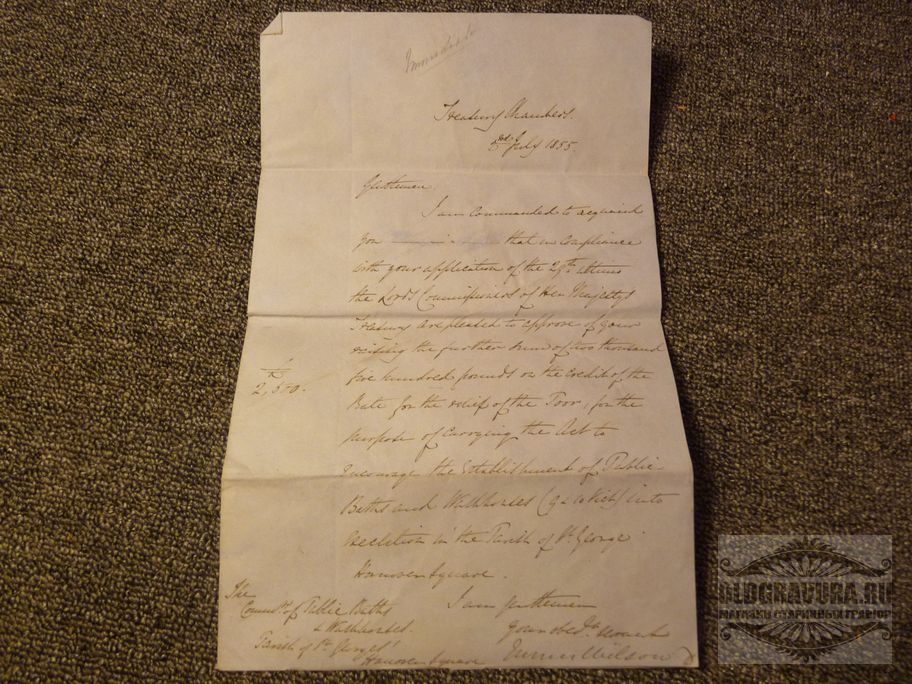 Immediate
Treasury Chambers.
July 1855.
Gentlemen.
I am Commanded to acquaint
you that in compliance
with your application of the 29th Ultimo
the Lords Commissioners of Her Majesty's
Treasury are pleased to approve of your
raising the further Sum of two thousand
five hundred pounds on the credit of the
£
2,500.
Rate for the relief of the Poor, for the
purpose of Carrying the Act to
Encourage the Establishment of Public
Baths and Washhouses (9 & 10 Vict) into
execution in the Parish of St. George
Hanover Square.
I am Gentlemen
Your obedt. Servant
James Wilson
The
Commrs. of Public Baths
& Washhouses.
Parish of St. George's
Hanover Square
OLDGRAVURA.RU
МАГАЗИН СТАРИННЫХ ГРАВЮР